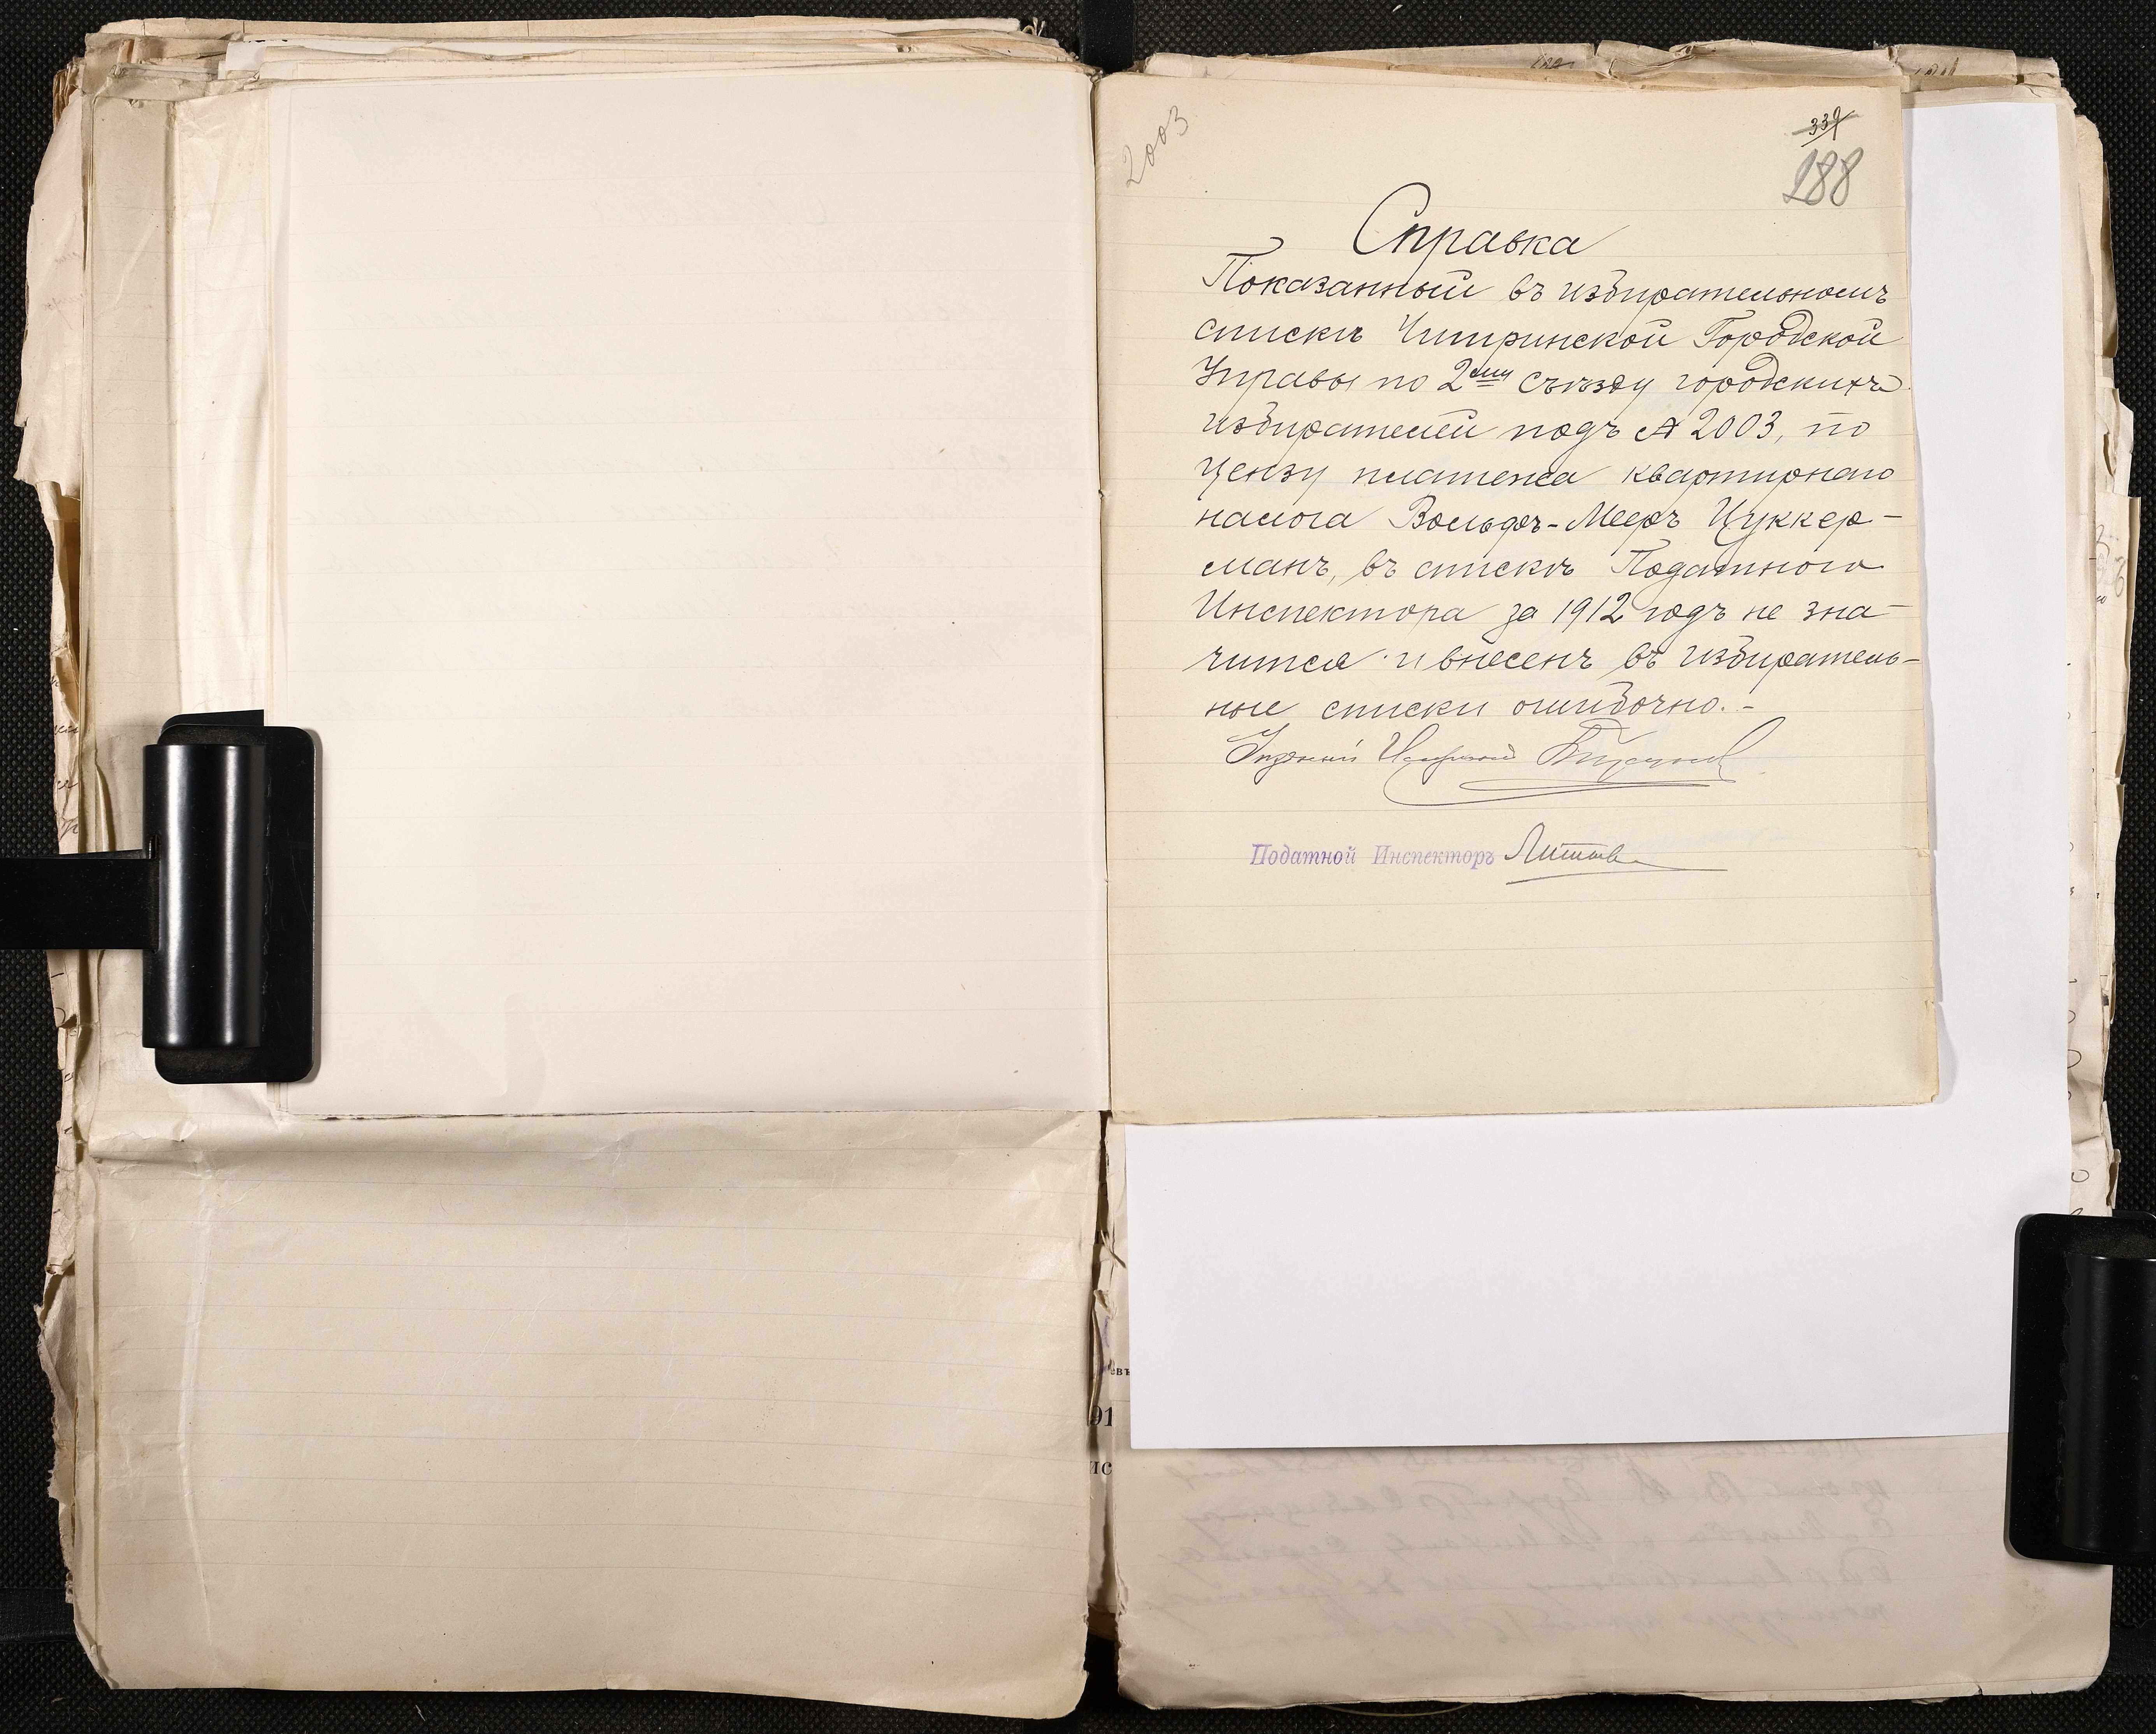 2003
339
188
Справка
Показанный въ избирательномъ
списке Читринской Городской
Управы по 2ому съѣзду городскихъ
избирателей подъ № 2003, по
цензу платежа квартирнаго
налога Вольфъ-Мееръ Цуккер-
манъ, въ спискѣ Податного
Инспектора за 1912 годъ не зна-
чится и внесенъ въ избиратель-
ные списки ошибочно.-
Податной Инспекторъ